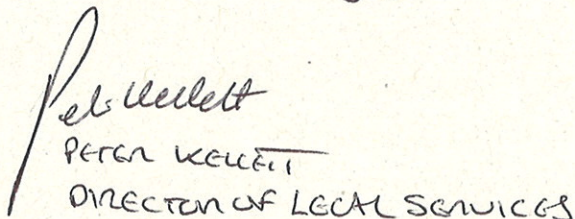 Peter Kellett
PETER KELLETT
DIRECTOR OF LEGAL SERVICES